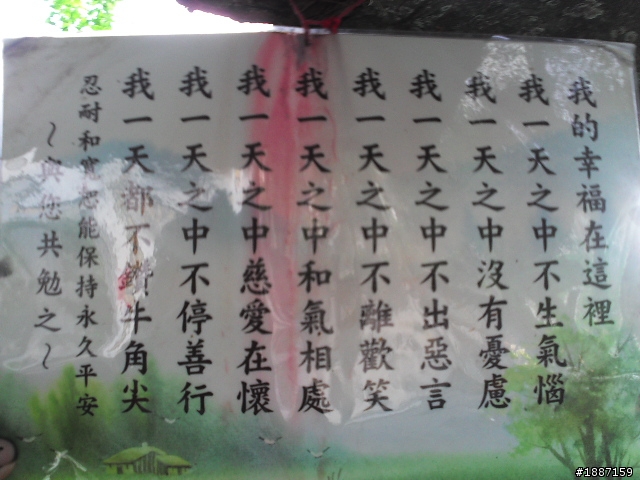 我的幸福在這裡
我一天之中不生氣惱
我一天之中沒有憂慮
我一天之中不出惡言
我一天之中不離歡笑
我一天之中和氣相處
我一天之中慈愛在懷
我一天之中不停善行
我一天都不鑽牛角尖
忍耐和寬恕能保持永久平安
~與您共勉之~
#1887159